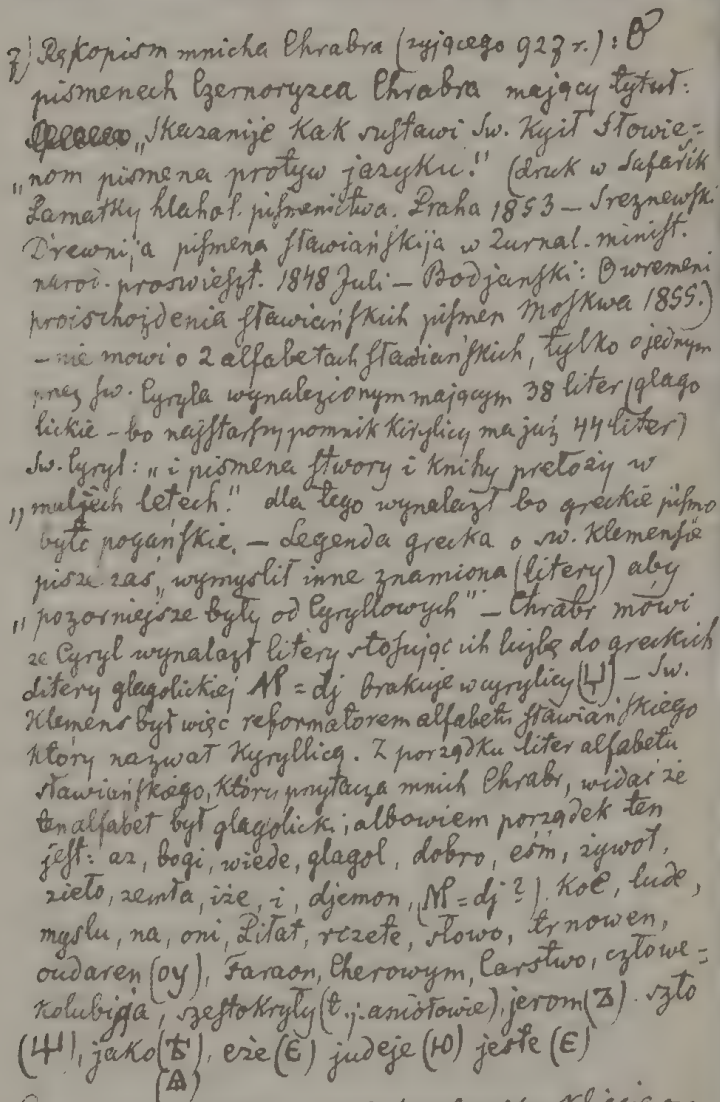 7) Rękopism mnicha Chrabra (żyjącego 927 r.): O
pismenech Czernoryzca Chrabra mający tytuł:
„Skazanije kak sustawi Sw. Kyił Słowie=
„nom pismena protyw jazyku." (druk w Safařik
Pamatky hlahol. pismenictwa. Praha 1853 – Sreznewski
Drewnija pismena sławiańskija w Żurnal. minist.
narod. proswieszt. 1848 Juli – Bodjanski: O wremeni
proischożdenia sławiańskich pismen Moskwa 1855.)
– nie mowi o 2 alfabetach sławiańskich, tylko o jednym
przez św. Cyryla wynalezionym mającym 38 liter (glago
lickie – bo najstarszy pomnik Kirylicy ma już 44 liter)
Sw. Cyryl: „i pismena stwory i knihy prełoży w
„ malјech letech." dla tego wynalazł bo greckie pismo
było pogańskie. – Legenda grecka o sw. Klemensie
pisze zaś „wymyslił inne znamiona (litery) aby
„ pozorniejsze były od Cyryllowych" – Chrabr mówi
że Cyryl wynalazł litery stosując ich liczbę do greckich
Litery glagolickiej M = dj brakuje w cyrylicy (Ҷ) – Sw.
Klemens był więc reformatorem alfabetu sławiańskiego
który nazwał Kyryllicą. Z porządku liter alfabetu
sławiańskiego, który przytacza mnich Chrabr, widać że
ten alfabet był glagolicki; albowiem porządek ten
jest: az, bogi, wiede, glagol, dobro, eśm, żywot,
zieło, zemła, iże, i, djemon, (M = dj?) Koe, lude,
myslu, na, oni, Pitat, rczete, słowo, trnowen,
oudaren (oy), Faraon, Cherowym, Carstwo, człowe=
kolubija, szestokryły (t.j. aniołowie), jerom (Ѣ) szto
(Ш), jako (Ѣ), eże (Є) judeje (Ю) jeste (Є)
(Ѧ)